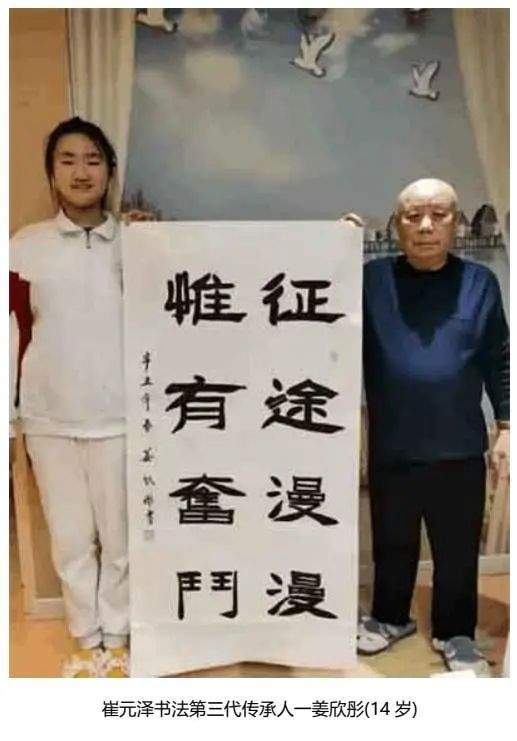 征途漫漫
惟有奮鬥
辛丑年春 姜欣彤書
崔元泽书法第三代传承人一姜欣彤(14 岁)